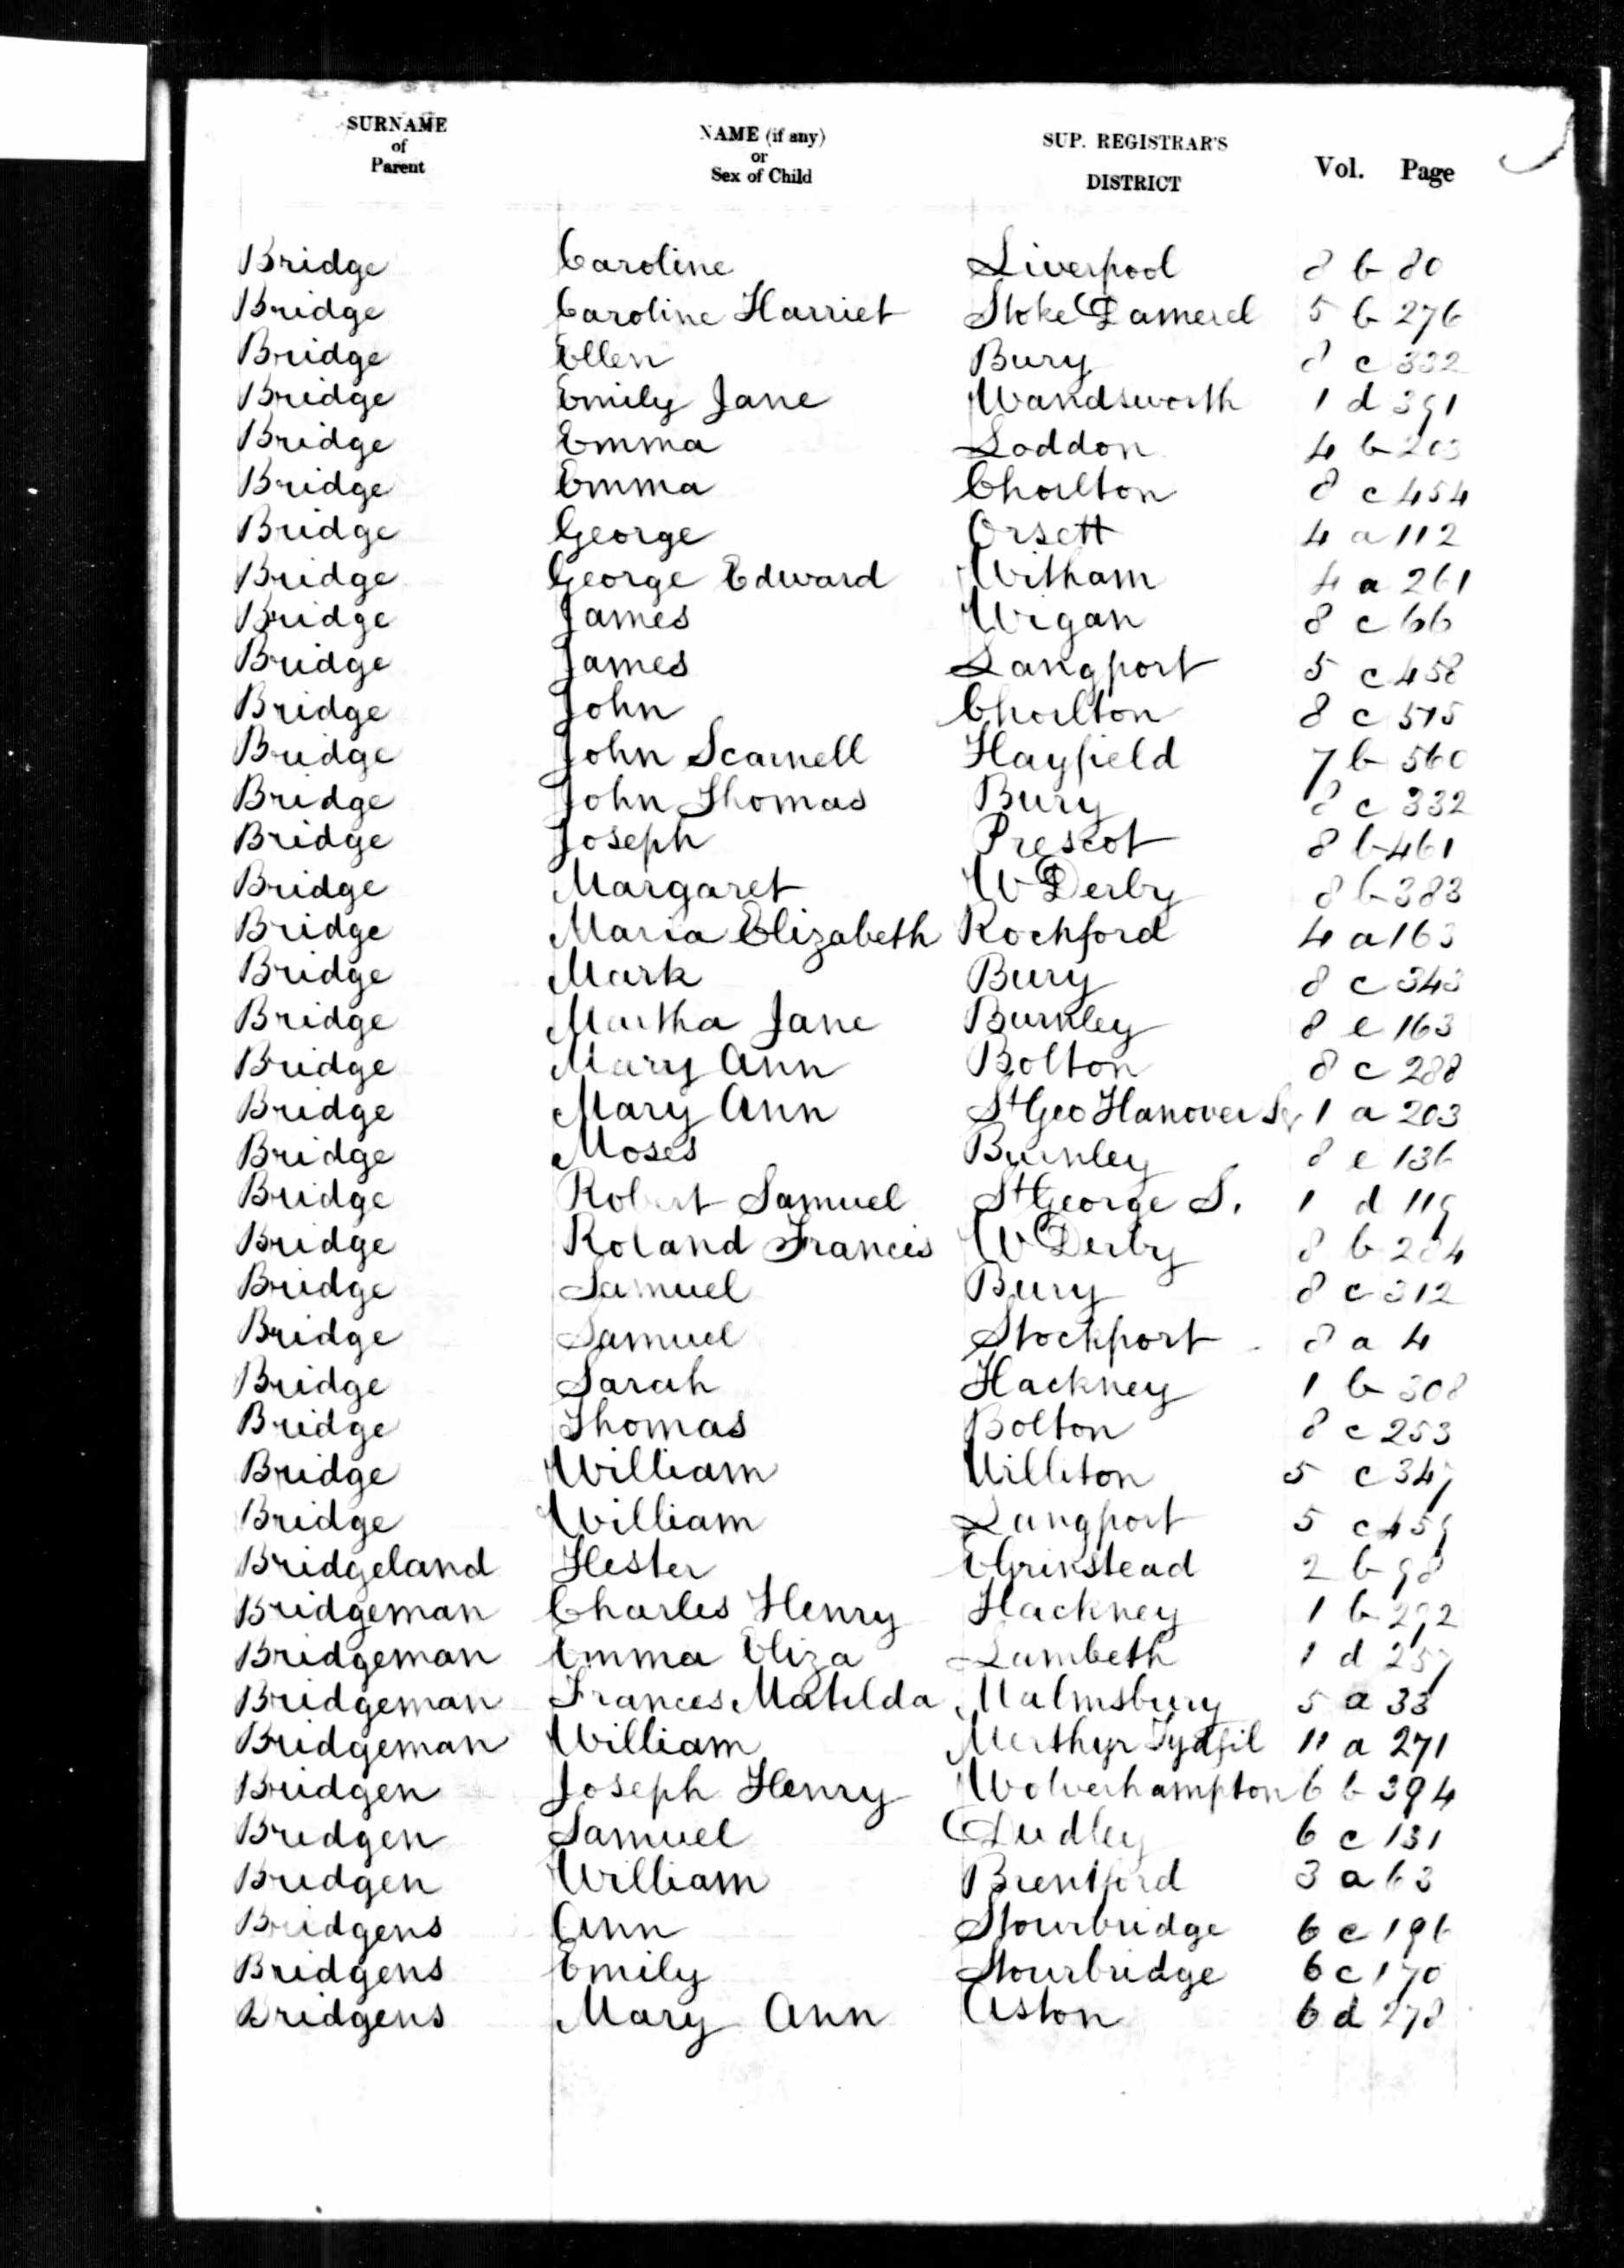 SURNAME of Parent NAME (if any) or Sex of Child SUP. REGISTRAR'S DISTRICT Vol. Page
Bridge Caroline Liverpool 8 b 80
Bridge Caroline Harriet Stoke Damerel 5 b 276
Bridge Ellen Bury 8 c 332
Bridge Emily Jane Wandsworth 1 d 391
Bridge Emma Loddon 4 b 203
Bridge Emma Chorlton 8 c 454
Bridge George Orsett 4 a 112
Bridge George Edward Witham 4 a 261
Bridge James Wigan 8 c 66
Bridge James Langport 5 c 458
Bridge John Chorlton 8 c 515
Bridge John Scarnell Hayfield 7 b 560
Bridge John Thomas Bury 8 c 332
Bridge Joseph Prescot 8 b 461
Bridge Margaret W Derby 8 b 383
Bridge Maria Elizabeth Rochford 4 a 163
Bridge Mark Bury 8 c 343
Bridge Martha Jane Burnley 8 e 163
Bridge Mary Ann Bolton 8 c 288
Bridge Mary Ann St Geo Hanover Sq 1 a 203
Bridge Moses Burnley 8 e 136
Bridge Robert Samuel St George S. 1 d 119
Bridge Roland Francis W Derby 8 b
Bridge Samuel Bury 8 c 312
Bridge Samuel Stockport 8 a 4
Bridge Sarah Hackney 1 b 308
Bridge Thomas Bolton 8 c 253
Bridge William Williton 5 c
Bridge William Langport 5 c 459
Bridgeland Hester E Grinstead 2 b 98
Bridgeman Charles Henry Hackney 1 b 292
Bridgeman Emma Eliza Lambeth 1 d
Bridgeman Frances Matilda Malmsbury 5 a 33
Bridgeman William Merthyr Tydfil 11 a 271
Bridgen Joseph Henry Wolverhampton 6 b 394
Bridgen Samuel Dudley 6 c 131
Bridgen William Brentford 3 a 63
Bridgens Ann Stourbridge 6 c 196
Bridgens Emily Stourbridge 6 c 170
Bridgens Mary Ann Aston 6 d 278